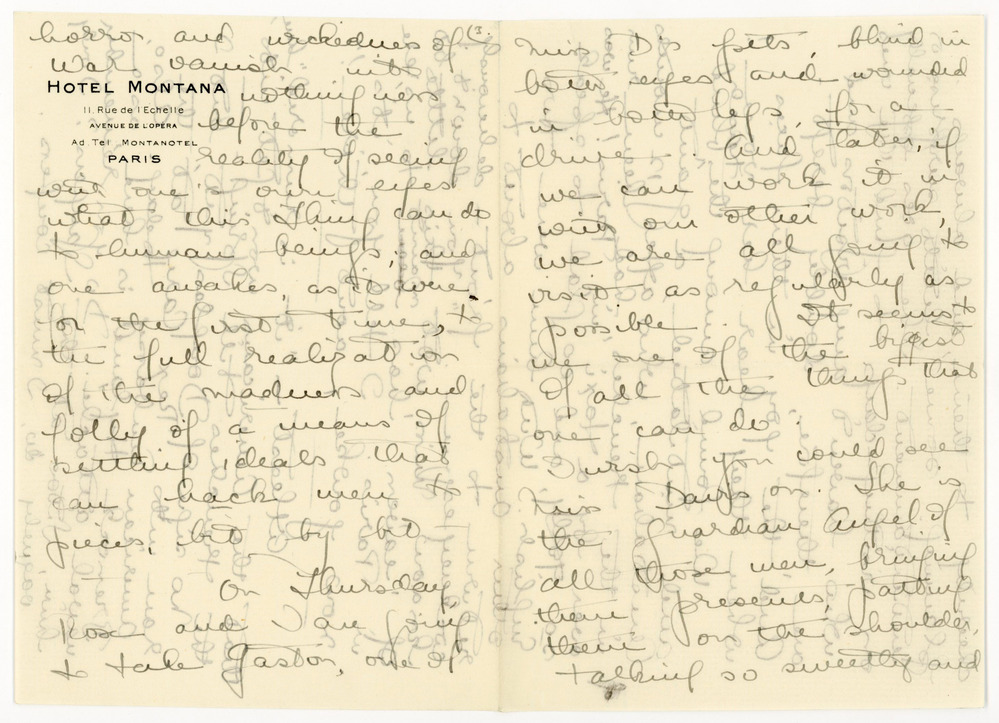 horror and wickedness of (3.
war vanish into
HOTEL MONTANA
nothingness
11. Rue de l'Echelle
AVENUE DE L'OPÉRA
before the
Ad. Tel. MONTANOTEL
PARIS
reality of seeing
with one's own eyes
what this Thing can do
to human beings; and
one awakes, as it were
for the first time, to
the full realization
of the madness and
folly of a means of
settling ideals that
can hack men to
pieces, bit by bit.
On Thursday,
Rose and I are going
to take Gaston, one of
Miss D's pets, blind in
both eyes and wounded
in both legs, for a
drive. And later, if
we can work it in
with our other work,
we are all going to
visit as regularly as
possible. It seems to
me one of the biggest
of all the things that
one can do.
I wish you could see
Miss Davison. She is
the Guardian Angel of
all those men, bringing
them presents, patting
them on the shoulder,
talking so sweetly and